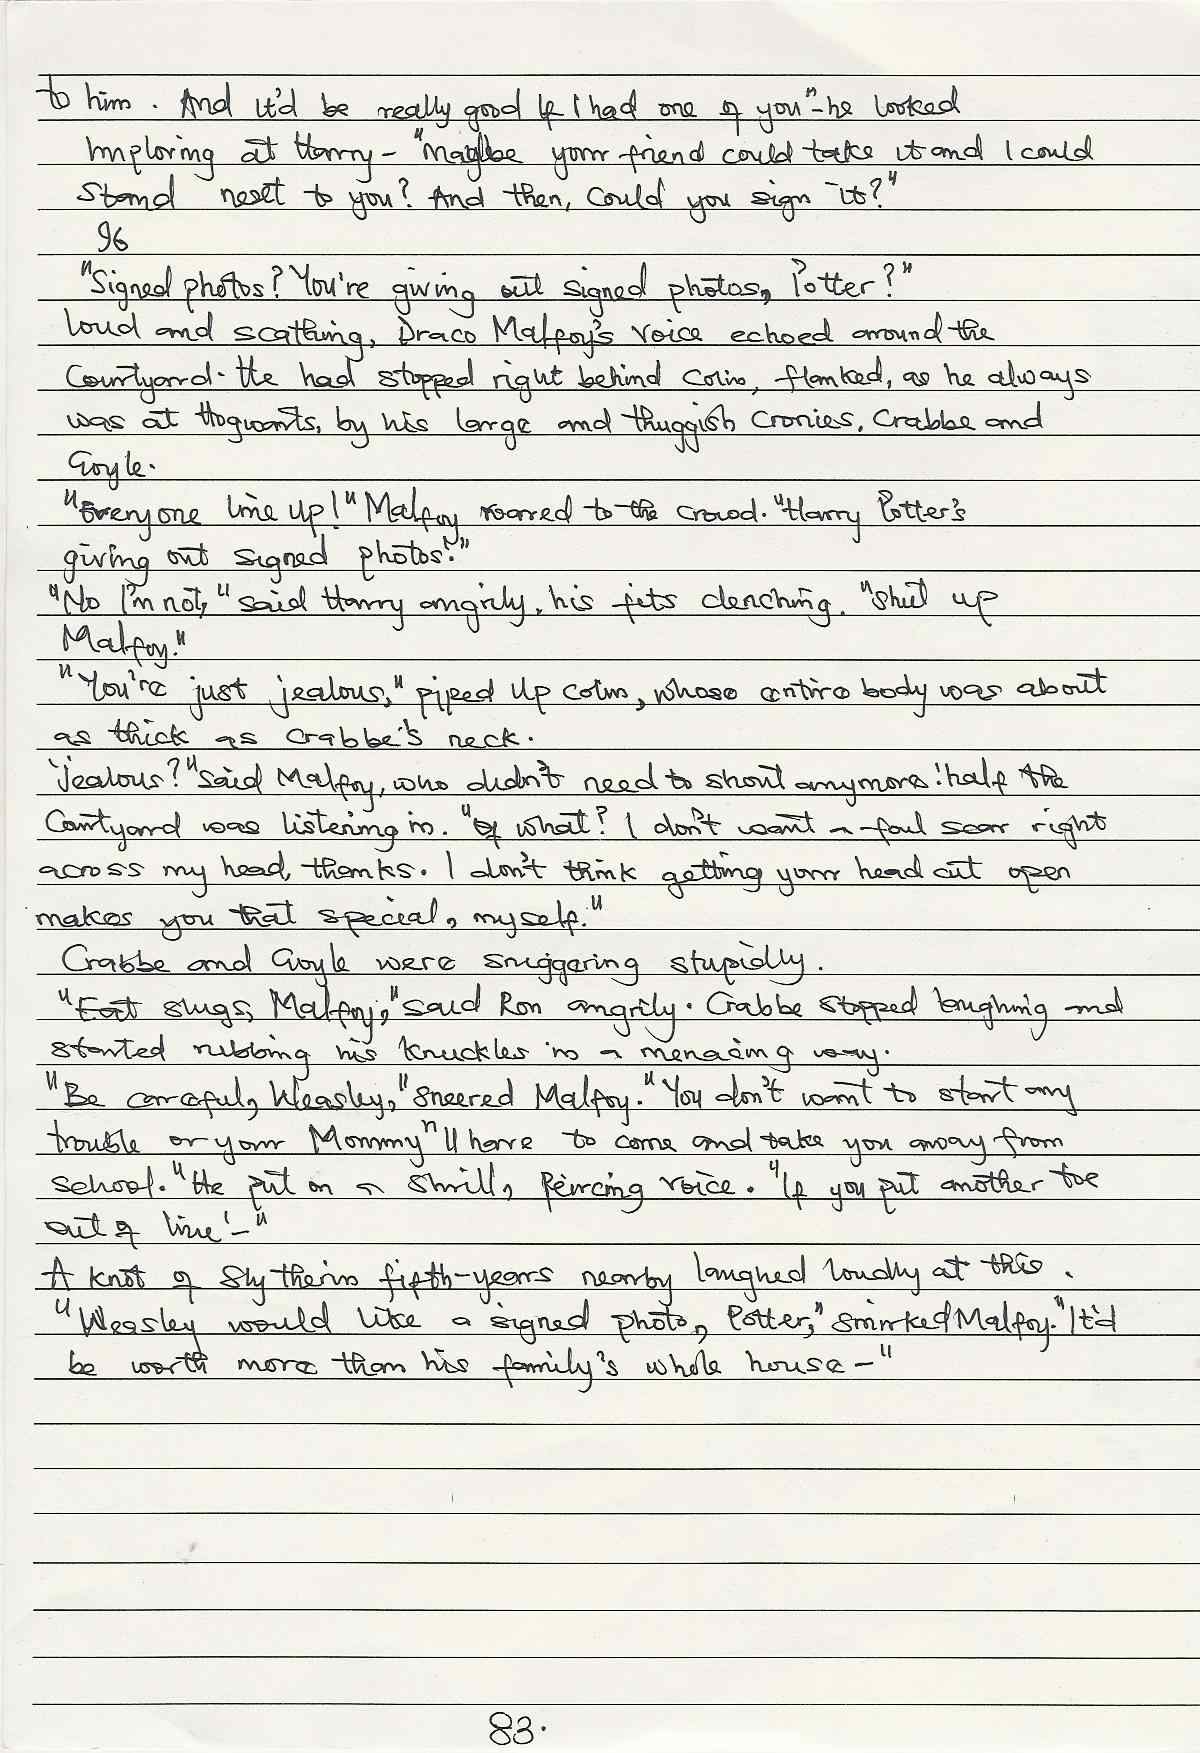 to him. And it'd be really good if I had one of you"-he looked
imploring at Harry - "Maybe your friend could take it and I could
stand next to you? And then, could you sign it?"
96
"Signed photos? You're giving out signed photos, Potter?"
Loud and scathing, Draco Malfoy's voice echoed around the
Courtyard. He had stopped right behind Colin, flanked, as he always
was at Hogwarts, by his large and thuggish cronies, Crabbe and
Goyle.
"Everyone line up!" Malfoy roared to the crowd. "Harry Potter's
giving out signed photos!"
"No I'm not," said Harry angrily, his fits clenching. "Shut up
Malfoy."
"You're just jealous," piped up Colin, whose entire body was about
as thick as Crabbe's neck.
"Jealous?" said Malfoy, who didn't need to shout anymore: half the
Courtyard was listening in. "Of what? I don't want a foul scar right
across my head, thanks. I don't think getting your head cut open
makes you that special, myself."
Crabbe and Goyle were sniggering stupidly.
"Eat slugs, Malfoy," said Ron angrily. Crabbe stopped laughing and
started rubbing his knuckles in a menacing way.
"Be careful, Weasley," sneered Malfoy. "You don't want to start any
trouble or your Mommy"ll have to come and take you away from
school." He put on a shrill, peircing voice. "If you put another toe
out of line'-"
A knot of Slytherin fifth-years nearby laughed loudly at this.
"Weasley would like a signed photo, Potter," smirked Malfoy. "It'd
be worth more than his family's whole house -"
83.